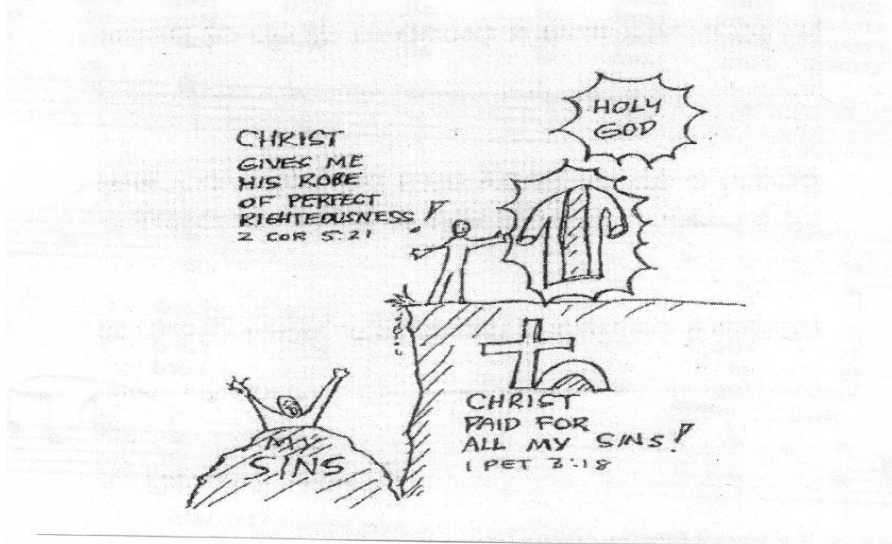 HOLY
GOD
CHRIST
GIVES ME
HIS ROBE
OF PERFECT
RIGHTEOUSNESS!
2 COR 5:21
MY
SINS
CHRIST
PAID FOR
ALL MY SINS!
1 PET 3:18